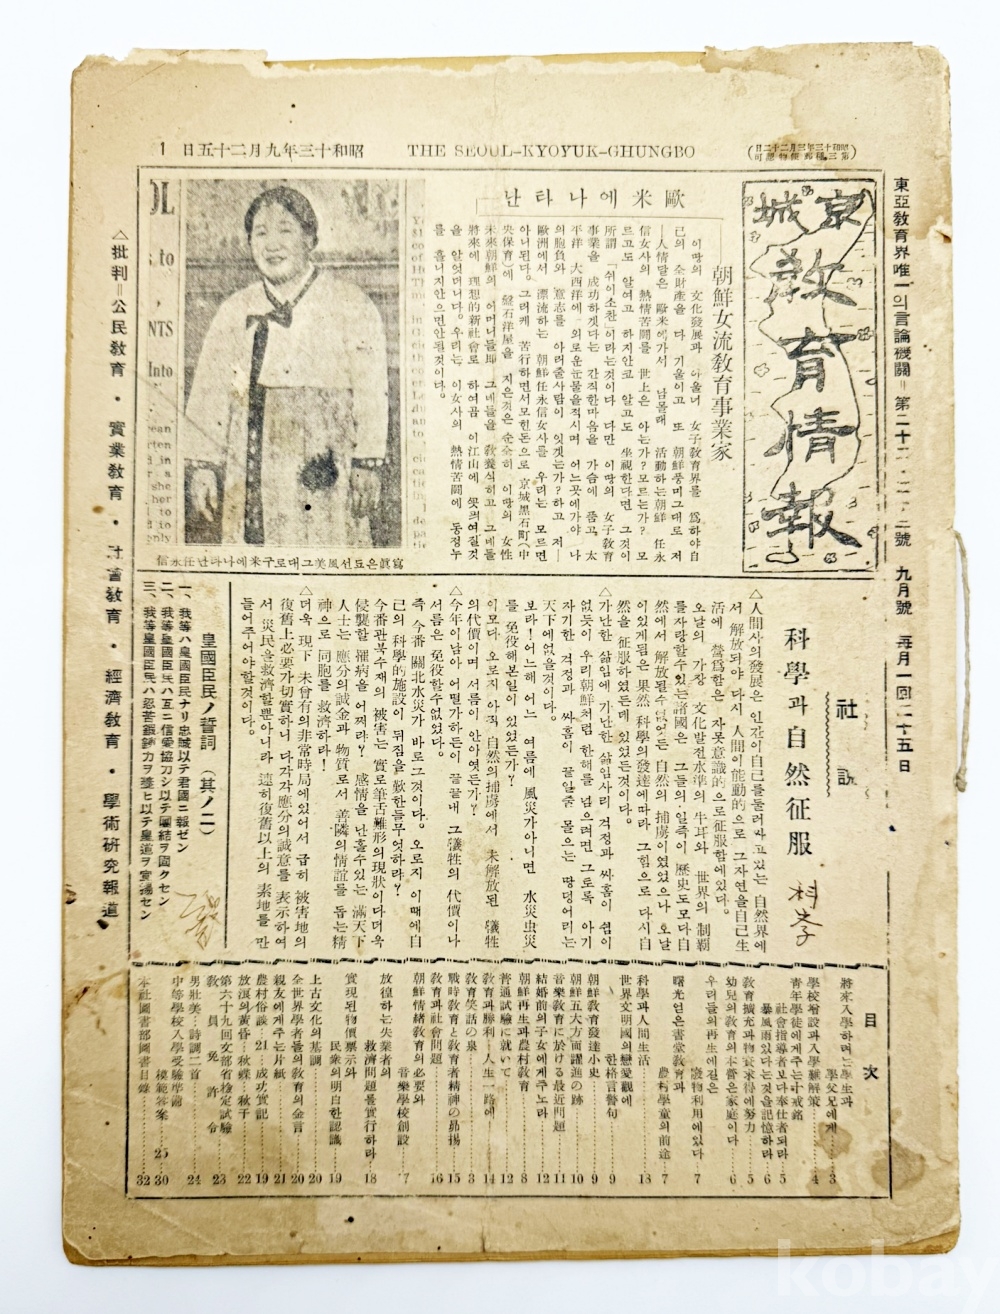 1 日五十二月九年三十和昭
THE SEOUL-KYOYUK-GHUNGBO
昭和十三年三月二十二日
第三種郵便物認可
東亞敎育界唯一의言論機關=第二十二·二·二號 九月號 每月一回二十五日
京城
敎育情報
난타나에米歐
朝鮮女流敎育事業家
이땅의 文化發展과 아울너 女子敎育界를 爲하야自
己의 全財産을 다 기울이고 또 朝鮮풍미그대로 저
—人情말은 歐米에가서 남몰래 活動하는朝鮮 任永
信女사의 熱情苦鬪를 世上은 아는가?모르는가? 모
르고도 알여고 하지안코 알고도 坐視한다면 그것이
所謂 「쉬이소찬」이라는것이다 다만 이땅의 女子敎育
事業을 成功하겟다는 간직한마음을 가슴에 품고, 太
平洋 大西洋에 외로운눈물을적시며 어느곳에가야 나
의胞負와 意志를 아려줄사람이 잇겟는가?하고 저—
歐洲에서 漂流하는 朝鮮任永信女사를 우리는 모르면
아니된다。그러케 苦行하면서모힌돈으로 京城黑石町(中
央保育)에 盤石洋屋을 지은것은 순全히 이땅의 女性
未來朝鮮의 어머니들 即 그네들을 敎養식히고 그네들
將來에 理想的新社會로 하여곰 이江山에 빗의여질것
을 알엇더니다。우리는 이女사의 熱情苦鬪에 동정누
를 흘너지안으면안될것이다。
信永任난타나에米구로대그美風선됴은眞寫
△批判=公民敎育·實業敎育·社會敎育·經濟敎育·學術硏究報道
社說
科學과自然征服
△人間사의發展은 인간이自己를둘러싸고있는 自然界에
서 解放되야 다시 人間이能動的으로 그자연을自己生
活에 營爲함은 자못意識的으로征服함에있다。
오날의 가장 文化발전水準의 牛耳와 世界의 制覇
를사랑할수있는諸國은 그들의 일즉이 歷史도모다自
然에서 解放될수없는 自然의 捕虜이였었으나 오날
이있게됨은 果然 科學의發達에따라 그힘으로 다시自
然을 征服하였든데 있었든것이다。
△가난한 삶임에 가난한 삶임사리 걱정과 싸홈이 쉽이
없듯이 우리朝鮮처럼 한해를 넘으려면 그토록 아기
자기한 걱정과 싸홈이 끌일줄 몰으는 땅덩어리는
天下에없을것이다。
보라!어느해 어느 여름에 風災가아니면 水災虫災
를 免役해본일이 있었든가?
이모다 오로지 아직 自然의捕虜에서 未解放된 犧牲
의代價이며 서름이 안아엿든가?
△今年이남아 어떨가하든이 끝끝내 그犧牲의 代價이나
서름은 免役할수없었다。
즉 今番 關北水災가 바로그것이다。오로지 이때에自
己의 科學的施設이 뒤짐을歎한들무엇하랴?
今番관북수재의 被害는 實로筆舌難形의現狀이다더욱
侵襲할 罹病을 어찌랴? 感情을 난홀수있는 滿天下
人士는 應分의誠金과 物質로서 善隣의情誼를 돕는精
神으로 同胞를 救濟하라!
△더욱 現下 未曾有의非常時局에있어서 급히 被害地의
復舊上必要가切實하니 다각각應分의誠意를 表示하여
서 災民을救濟할뿐아니라 速히復舊以上의 素地를 만
들어주어야할것이다。
皇國臣民ノ誓詞 (其ノ二)
一、我等ハ皇國臣民ナリ忠誠以テ君國ニ報ゼン
二、我等皇國臣民ハ互ニ信愛協力シ以テ團結ヲ固クセン
三、我等皇國臣民ハ忍苦鍛鍊力ヲ養ヒ以テ皇道ヲ宣揚セン
目次
將來入學하며는學生과
學父兄에게……3
學校增設과入學難解策……4
靑年學徒에게주는十戒銘……5
社會指導者보다奉仕者되라……5
暴風雨있다는것을記憶하라……6
敎育擴充과物資求得에努力……5
幼兒의敎育의本營은家庭이다……6
우리들의再生에길은
廢物利用에있다……7
曙光얻은書堂敎育과
農村學童의前途……7
科學과人間生活……13
世界文明國의戀愛觀에……9
한格言警句……9
朝鮮敎育發達小史……9
朝鮮五大方面躍進の跡……10
音樂敎育に於ける最近問題……11
結婚前의子女에게주노라……12
朝鮮再生과農村敎育……8
普通試驗に就いて……12
敎育과勝利—人生一路에……14
敎育笑話の泉……3
戰時敎育と敎育者精神の昻揚……15
敎育과社會問題……16
朝鮮情緖敎育의必要와
音樂學校創設……7
放徨하는失業者의
救濟問題를實行하라……18
實現된物價票示와
民衆의明白한認識……19
上古文化의基調……20
全世界學者들의敎育의金言……20
親友에게주는片紙……21
農村俗談……21 成功實記……19
放浪의黃昏…秋蝶…秋子……22
第六十九回文部省檢定試驗
敎員免許令……23
男壯美…詩調二首……24
中等學校入學受驗準備
模範答案……25 30
本社圖書部圖書目錄……32
kobay